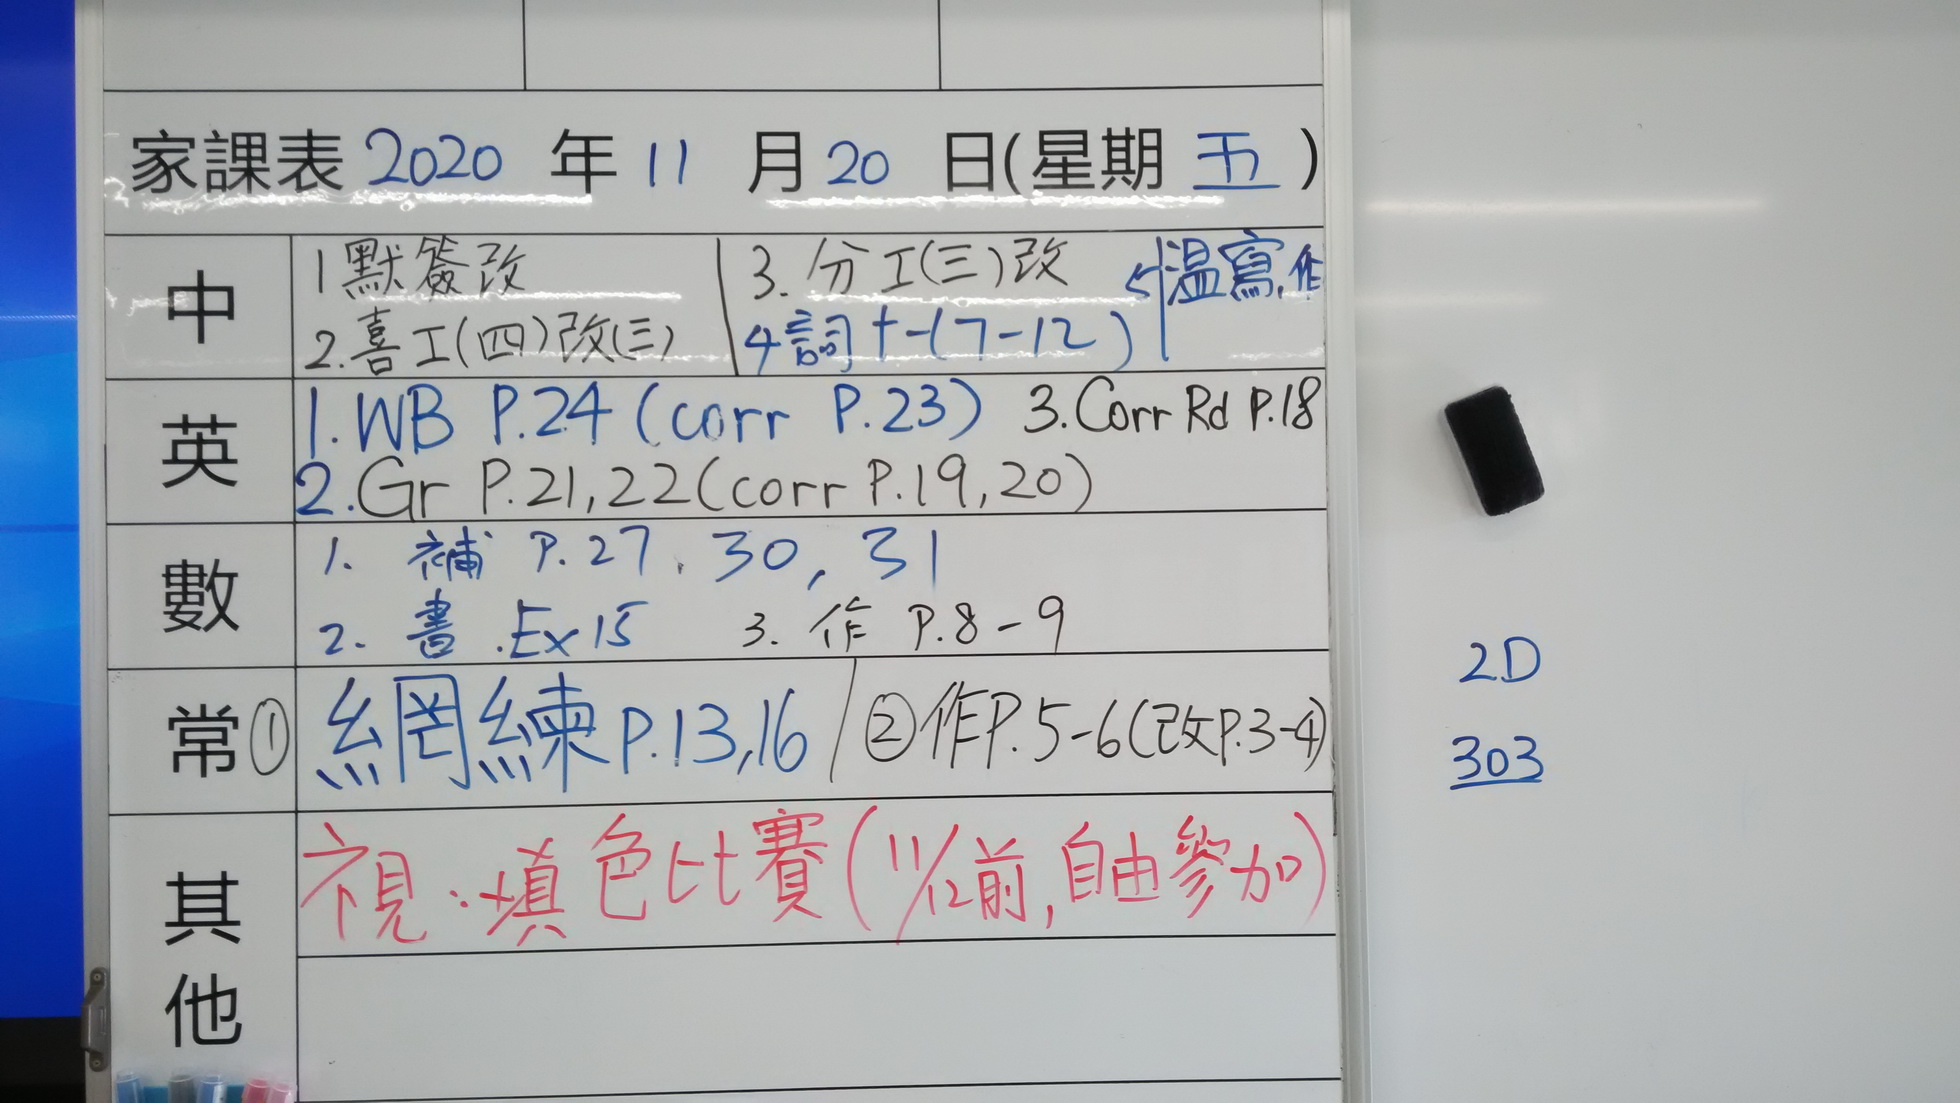 家課表 2020 年 11 月 20 日(星期 五 )
中
1 默簽改
2. 喜工(四)改(三)
3. 分工(三)改
4 詞十一(7-12)
5 溫寫,作
英
1. WB P.24 (corr P.23) 3. Corr Rd P.18
2. Gr P.21,22 (corr P.19,20)
數
1. 補 P.27, 30, 31
2. 書 .Ex 15 3. 作 P.8-9
常 ① 網練 P.13,16 / ② 作P.5-6(改P.3-4)
其他
視:填色比賽(11/12前,自由參加)
2D
303